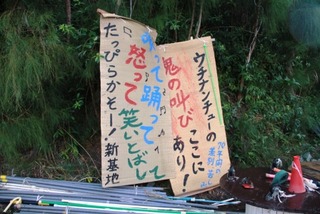 ウチナンチューの
鬼の叫び
ここに
あり!
歌って踊って
怒って笑いとばして
たっぴらかそー!新基地